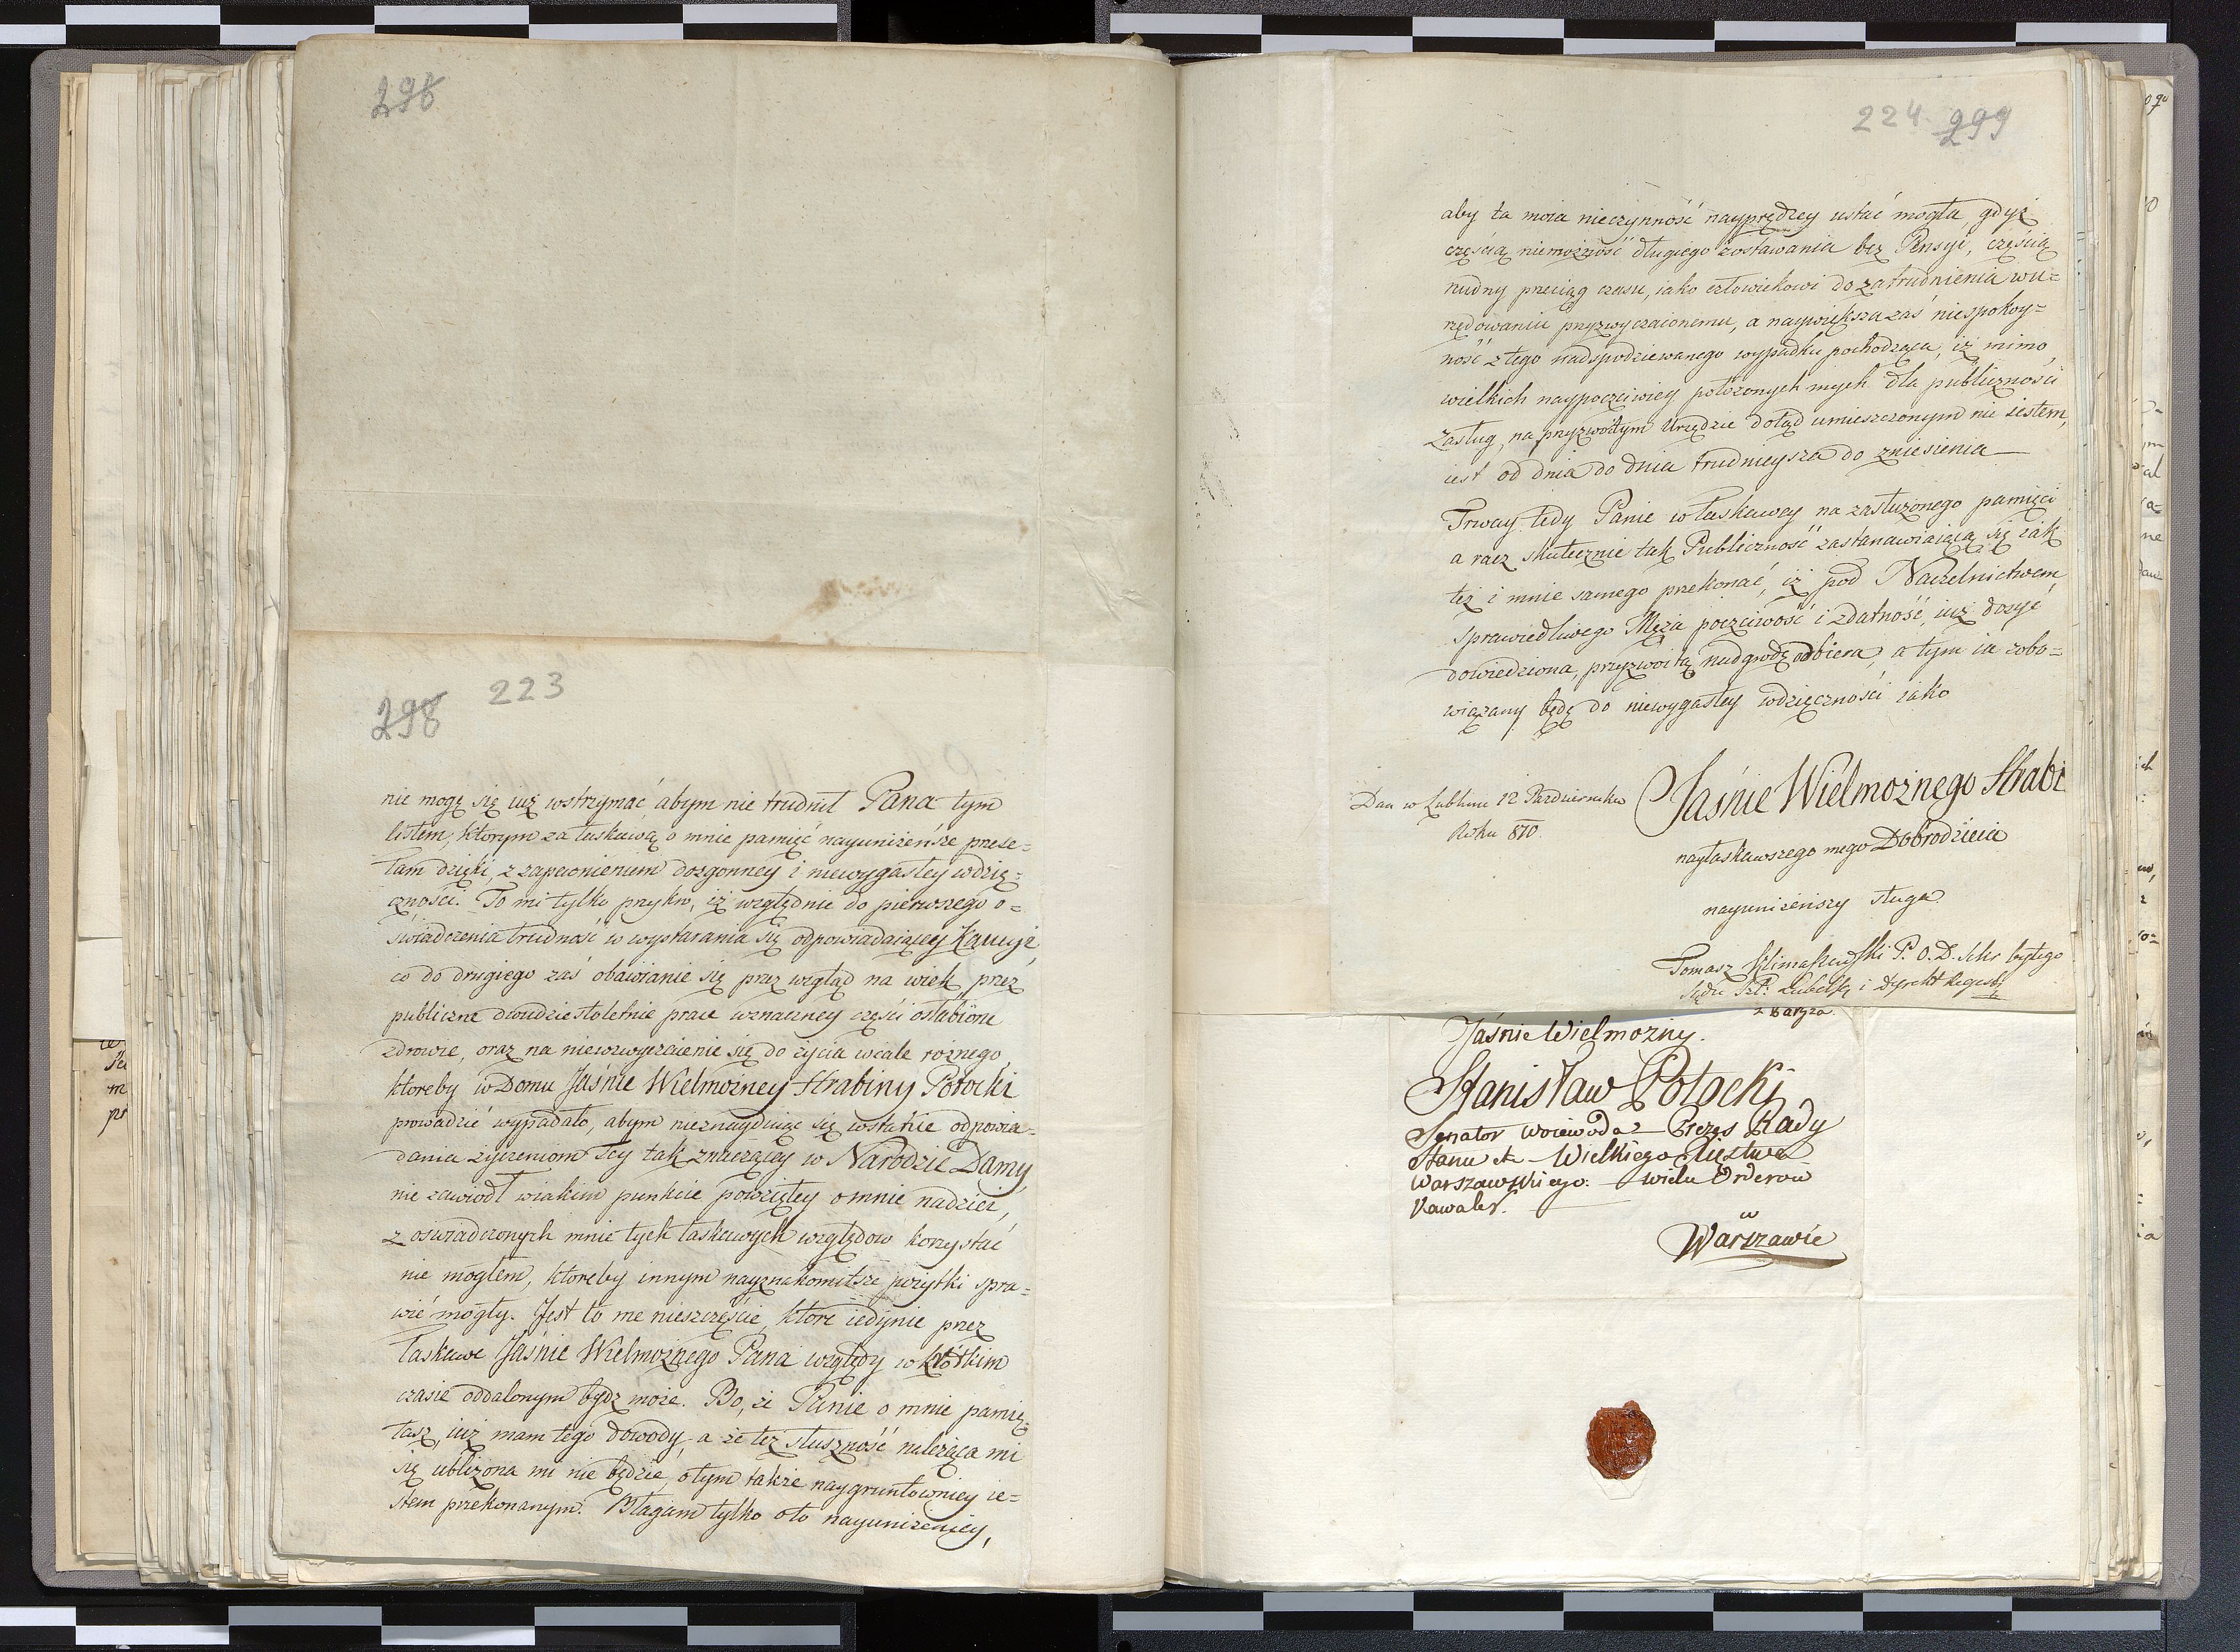 298
298 223
nie mogę się iuż wstrzymać abym nie trudnił Pana tym
listem, ktorym za łaskawą o mnie pamięć nayuniżeńsze prze-
łam dzięki, z zapewnieniem dozgonney i niewygasłey wdzię-
czności. To mi tylko przykro, iż względnie do pierwszego o-
świadczenia trudność w wystarania się odpowiadaiącey Kaucyi,
co do drugiego zaś obawianie się przez wzgląd na wiek, przez
publiczne dwudziestoletnie prace w znaczney części osłabione
zdrowie, oraz na niezwyczaienie się do życia wcale rożnego,
ktoreby w Domu Jaśnie Wielmożney Hrabiny Potocki
prowadzić wypadało, abym nieznayduiąc się w stanie odpowia-
dania życzeniom Jey tak znaczącey w Narodzie Damy,
nie zawiodł w iakim punkcie powziętey o mnie nadziei,
z oświadczonych mnie tych łaskawych względow korzystać
nie mogłem, ktoreby innym nayznakomitsze pożytki spra-
wić mogły. Jest to me nieszczęście, ktore iedynie przez
łaskawe Jaśnie Wielmożnego Pana względy w krótkim
czasie oddalonym bydź może. Bo, że Panie o mnie pamię-
tasz, iuż mam tego dowody, a że też słuszność należąca mi
się ubliżona mi nie będzie, o tym także naygruntowniey ie-
stem przekonanym. Błagam tylko o to nayuniżeniey,
224 299
aby ta moia nieczynność nayprędzey ustać mogła, gdyż
częścią niemożność długiego zostawania bez Pensyi, częścią
nudny przeciąg czasu, iako człowiekowi do zatrudnienia w u-
rzędowaniu przyzwyczaionemu, a naywiększa zaś niespokoy-
ność z tego nadspodziewanego wypadku pochodząca, iż mimo
wielkich naypoczciwiey położonych mych dla publiczności
zasług, na przyzwoitym Urzędzie dotąd umieszczonym nie iestem,
iest od dnia do dnia trudnieysza do zniesienia —
Trway tedy Panie w łaskawey na zasłużonego pamięci
a racz skutecznie tak Publiczność zastanawiaiącą się iak
też i mnie samego przekonać, iż pod Naczelnictwem
sprawiedliwego Męża poczciwość i zdatność, iuż dosyć
dowiedziona, przyzwoitą nadgrodę odbiera, a tym ia zobo-
wiązany będę do niewygasłey wdzięczności iako
Dan w Lublinie 12 Pazdziernika
Roku 810.
Jaśnie Wielmożnego Hrabi
nayłaskawszego mego Dobrodzieia
nayuniżeńszy sługa
Tomasz Klimaszewski P. O. D. Sekr byłego
Sądu Szl: Lubelsk i Dyrekt Regestr
Jaśnie Wielmożny.
Stanisław Potocki
Senator Woiewoda Prezes Rady
Stanu &c Wielkiego Xięstwa
Warszawskiego. wielu Orderow
Kawaler.
w
Warszawie